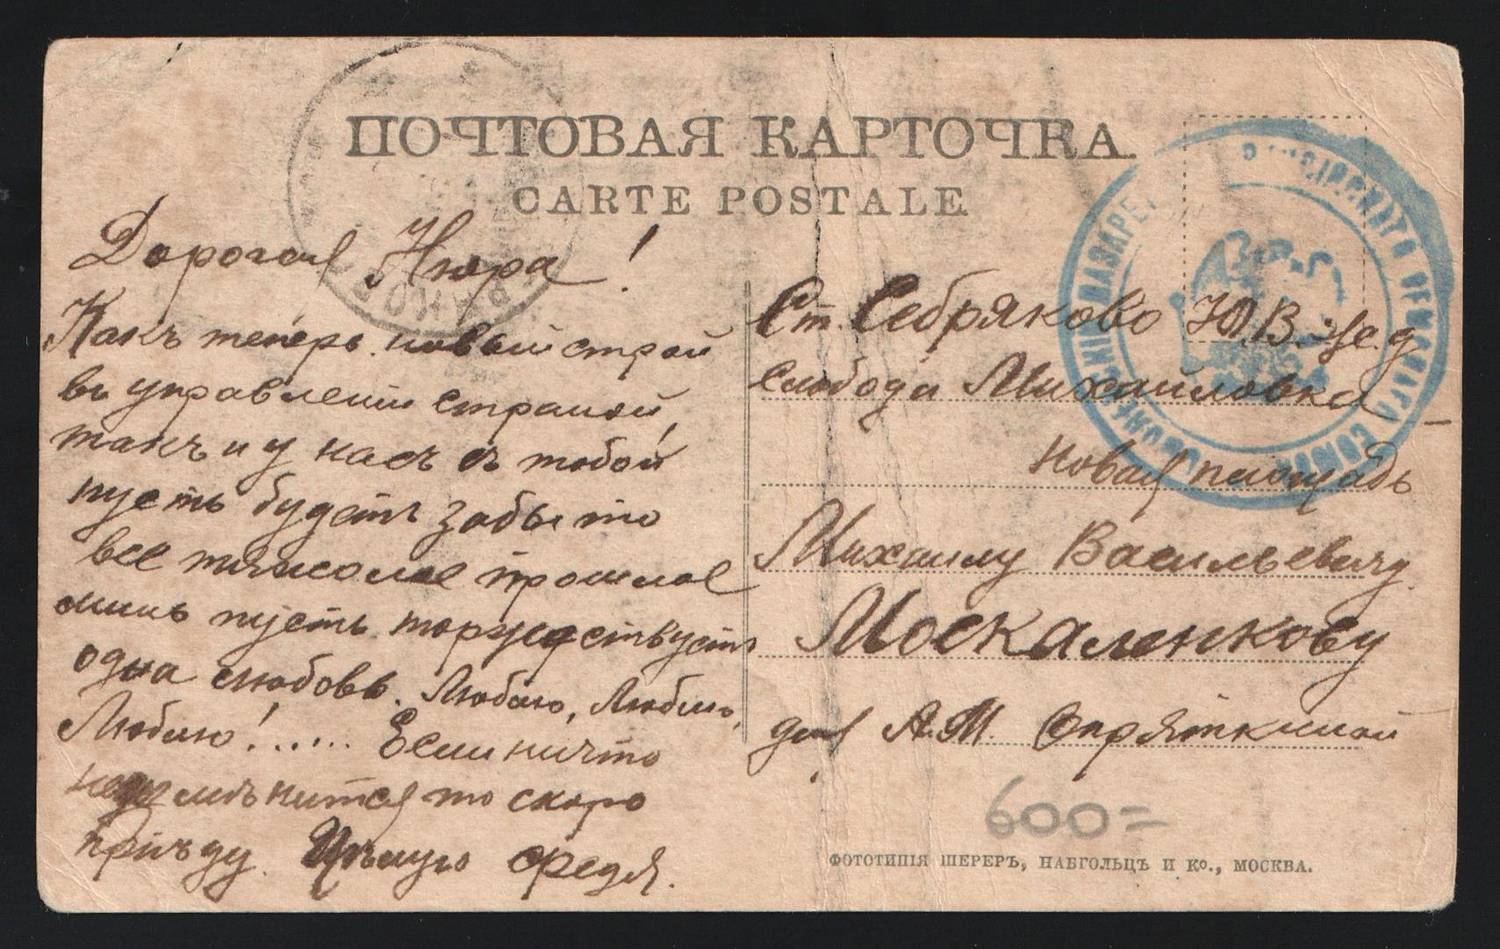 ПОЧТОВАЯ КАРТОЧКА.
CARTE POSTALE
Дорогая Нюра!
Какъ теперь новый строй
въ управленiи страной,
такъ и у насъ съ тобой
пусть будетъ забыто
все тяжолое прошлое
лишь пусть торжествуетъ
одна любовь. Люблю, Люблю,
Люблю!...... Если ничто
не измѣнится то скоро
прiѣду. Цѣлую Федя.
Ст. Себряково Ю.В. ж.д
слобода Михайловка
Новая площадь
Михаилу Васильевичу
Москаленкову
для А.М.
600=
ФОТОТИПІЯ ШЕРЕРЪ, НАБГОЛЬЦЪ И Ко., МОСКВА.
ЛАЗАРЕ
ЗЕМСКАГО СОЮЗ